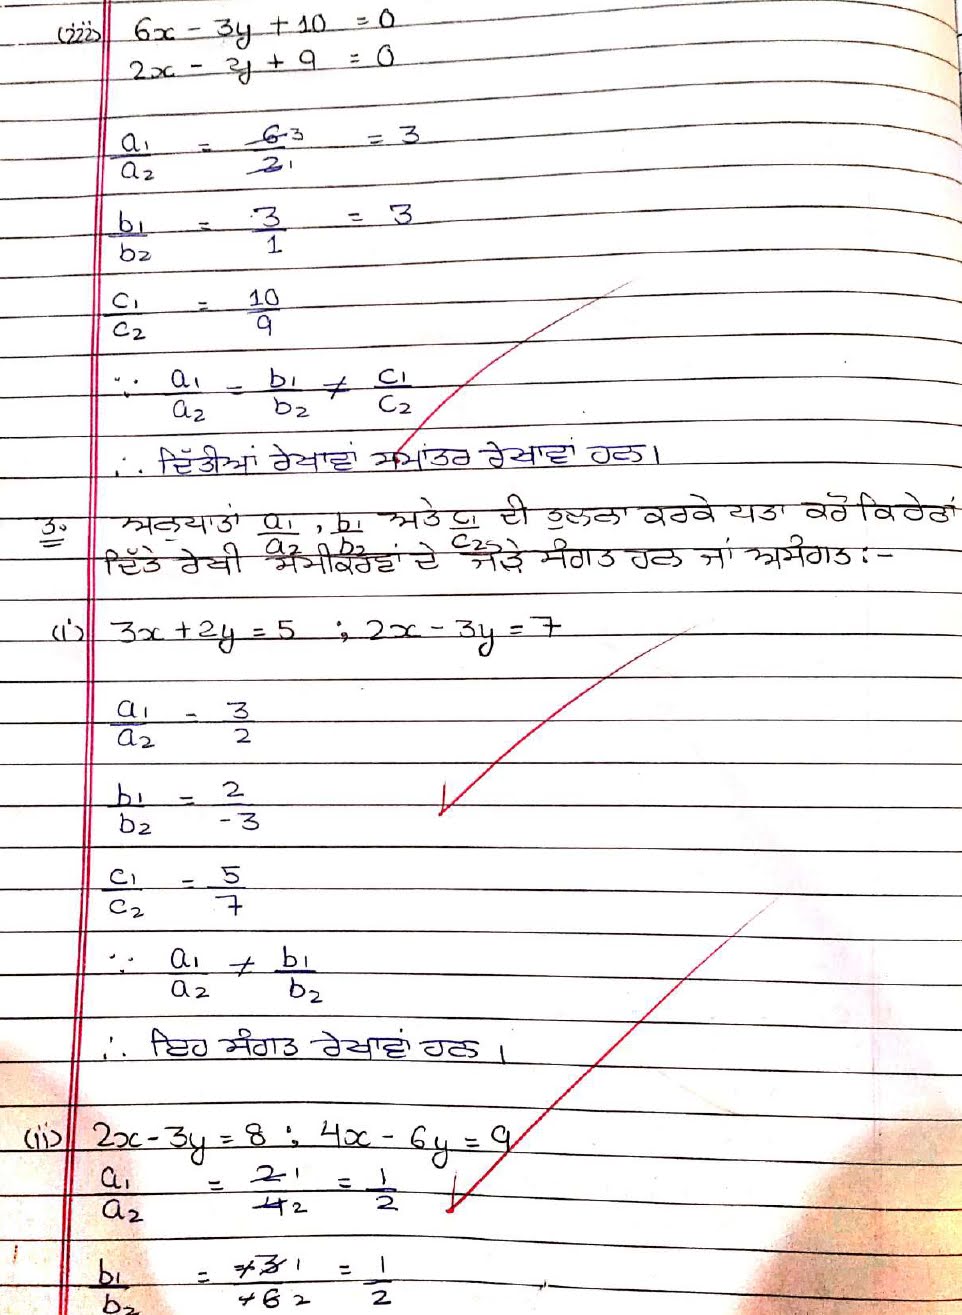 (iii) 6x - 3y + 10 = 0
2x - y + 9 = 0
a₁/a₂ = 6 3/2 1 = 3
b₁/b₂ = 3/1 = 3
c₁/c₂ = 10/9
∵ a₁/a₂ = b₁/b₂ ≠ c₁/c₂
∴ ਦਿੱਤੀਆਂ ਰੇਖਾਵਾਂ ਸਮਾਂਤਰ ਰੇਖਾਵਾਂ ਹਨ।
3. ਅਨੁਪਾਤਾਂ a₁/a₂, b₁/b₂ ਅਤੇ c₁/c₂ ਦੀ ਤੁਲਨਾ ਕਰਕੇ ਪਤਾ ਕਰੋ ਕਿ ਹੇਠਾਂ
ਦਿੱਤੇ ਰੇਖੀ ਸਮੀਕਰਣਾਂ ਦੇ ਜੋੜੇ ਸੰਗਤ ਹਨ ਜਾਂ ਅਸੰਗਤ :-
(i) 3x + 2y = 5 ; 2x - 3y = 7
a₁/a₂ = 3/2
b₁/b₂ = 2/-3
c₁/c₂ = 5/7
∵ a₁/a₂ ≠ b₁/b₂
∴ ਇਹ ਸੰਗਤ ਰੇਖਾਵਾਂ ਹਨ।
(ii) 2x - 3y = 8 ; 4x - 6y = 9
a₁/a₂ = 2 1/4 2 = 1/2
b₁/b₂ = -3 1/-6 2 = 1/2